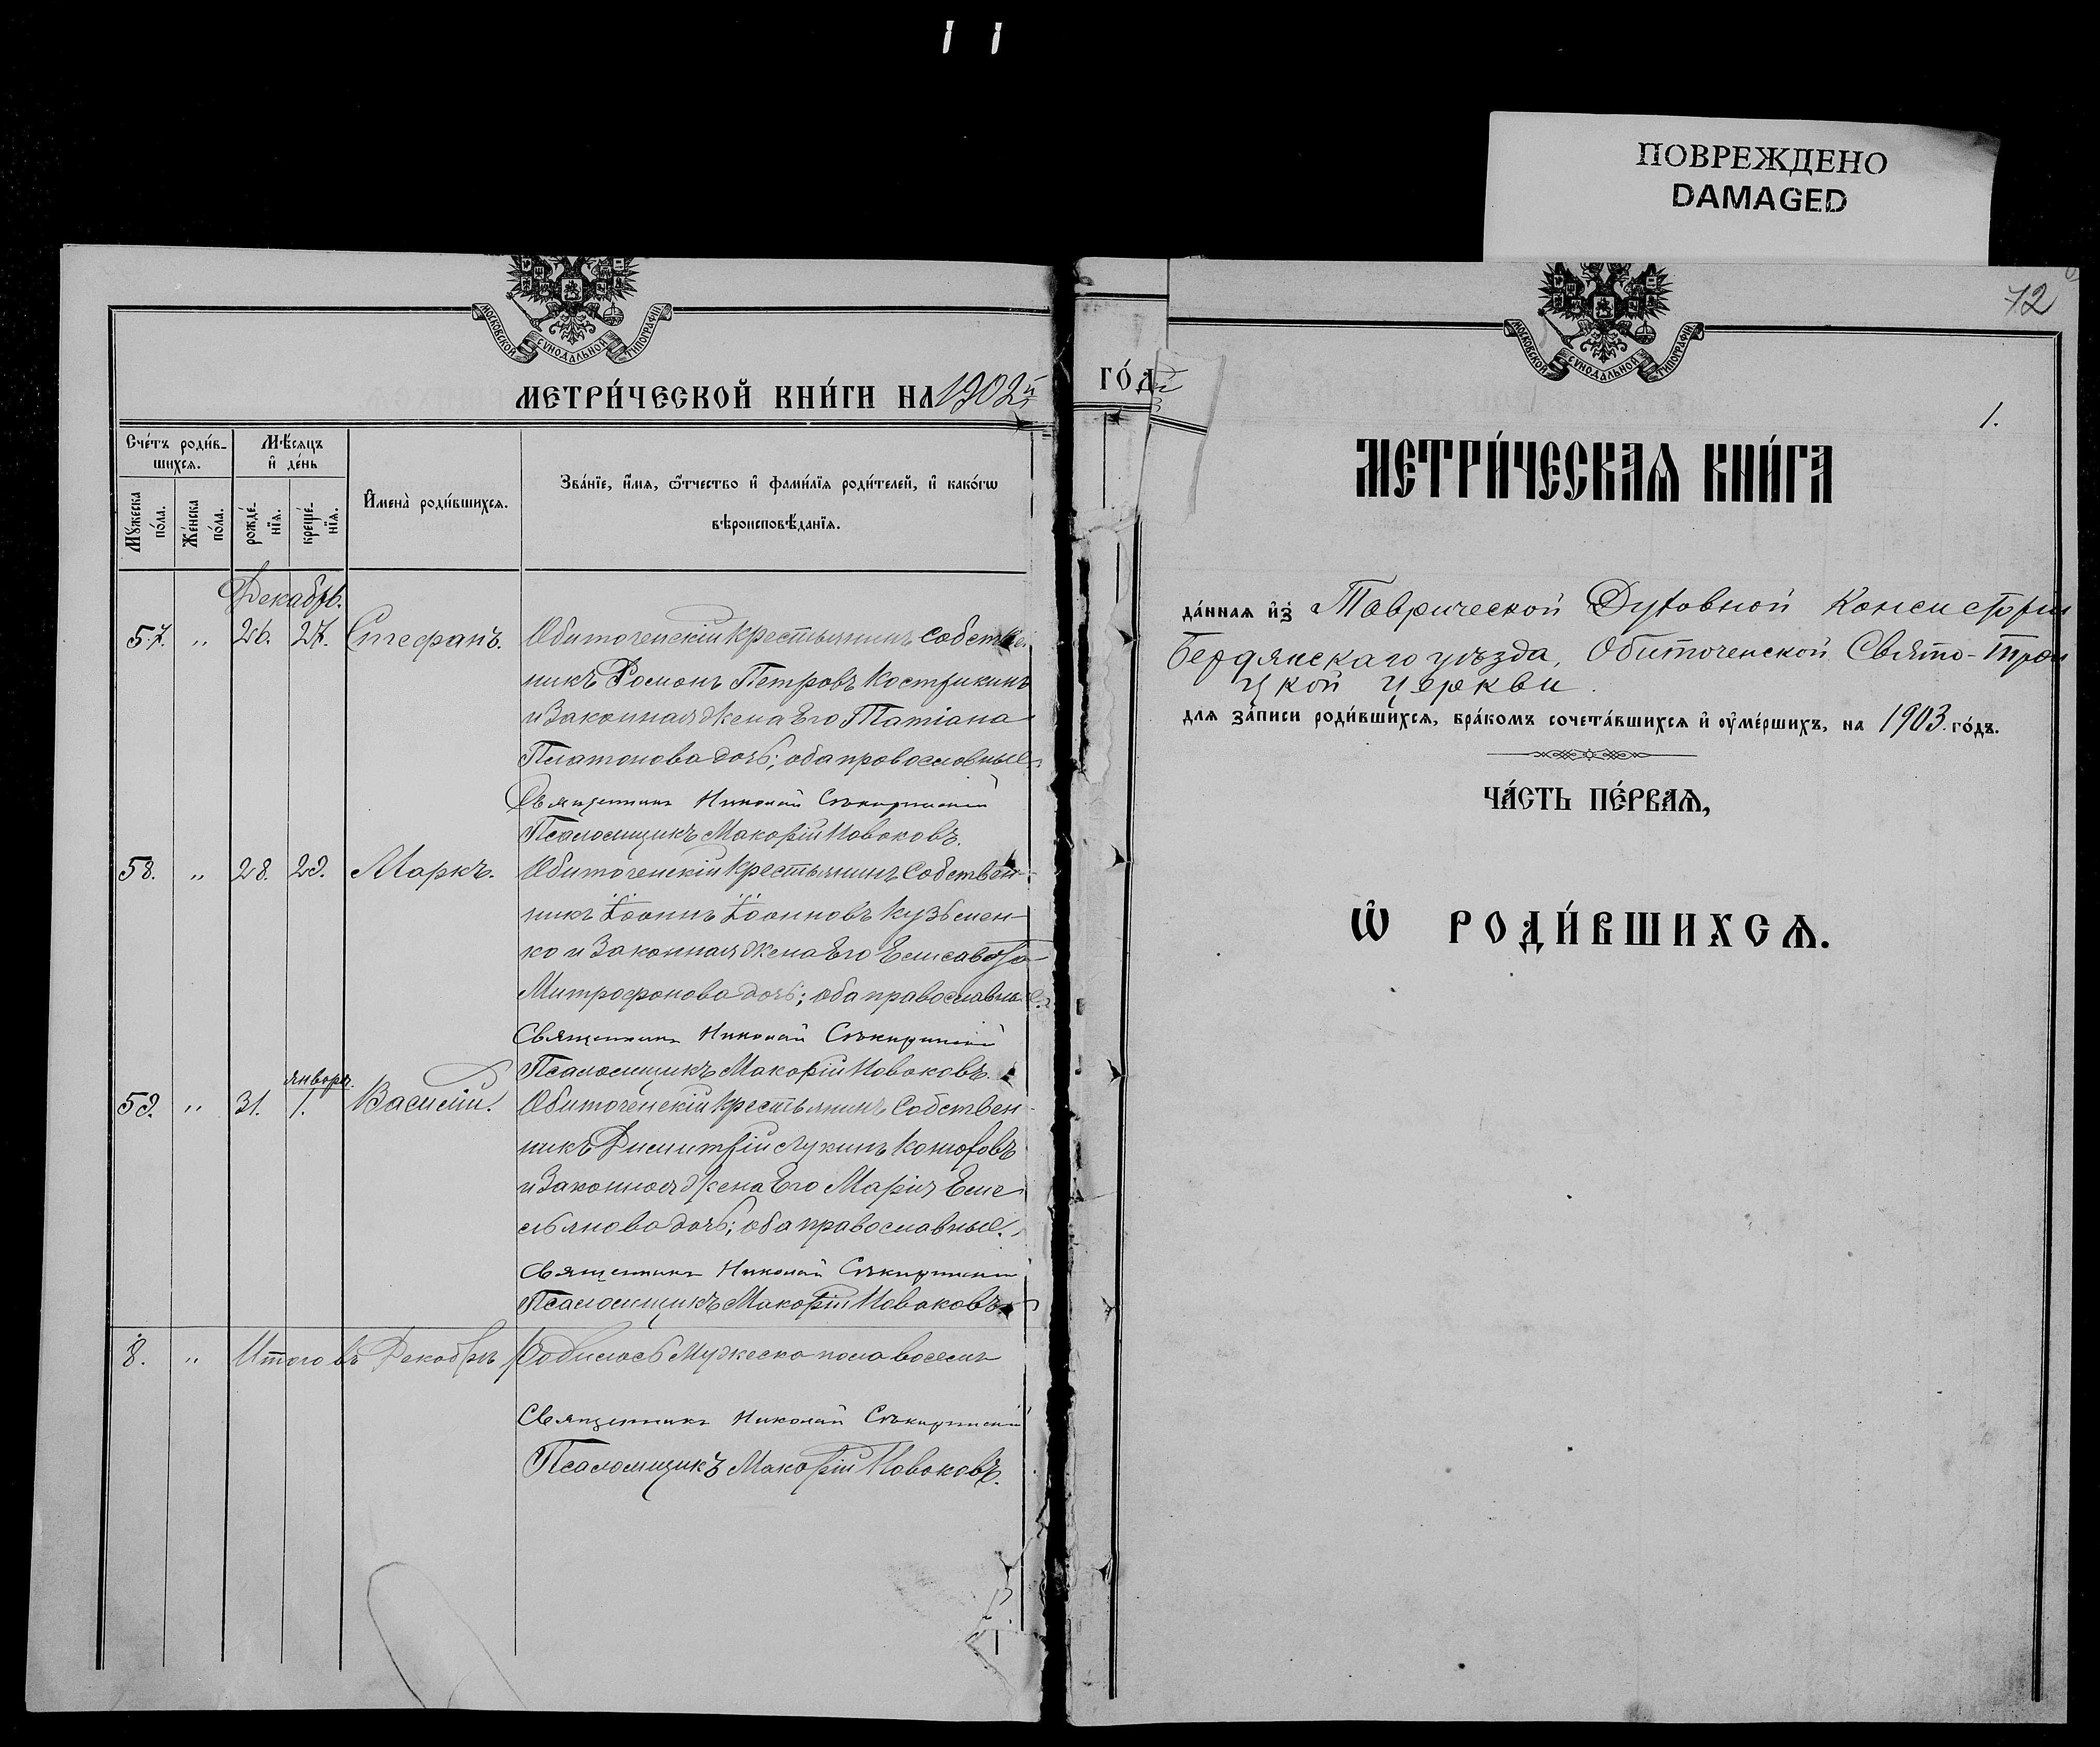 ПОВРЕЖДЕНО
DAMAGED
МОСКОВСКОЙ СѴНОДАЛЬНОЙ ТИПОГРАФІИ
МЕТРИ́ЧЕСКОЙ КНИ́ГИ НА 1902й
Сче́тъ роди́в-
шихсѧ.
Мѣ́сѧцъ
и҆ де́нь
Мꙋ́жеска
по́ла.
Же́нска
по́ла.
рожде́-
нїѧ.
креще́-
нїѧ.
И҆мена̀ роди́вшихсѧ.
Зва́нїе, и҆́мѧ, ѻ҆́тчество и҆ фами́лїѧ роди́телей, и҆ како́гѡ
вѣроисповѣ́данїѧ.
Декабрь.
57. „ 26. 27. Стефанъ. Обиточенскій крестьянинъ собствен
никъ Романъ Петровъ Кострикинъ
и Законная жена Его Татіана
Платонова дочь; оба православные.
Священникъ Николай Сѣкиринскій
Псаломщикъ Макарій Новаковъ.
58. „ 28. 29. Маркъ. Обиточенскій крестьянинъ Собствен-
никъ Іоаннъ Іоанновъ Кузьмен-
ко и Законная жена Его Елисавета
Митрофанова дочь; оба православные.
Священникъ Николай Сѣкиринскій
Псаломщикъ Макарій Новаковъ.
января.
59. „ 31. 1. Василій. Обиточенскій крестьянинъ Собствен-
никъ Димитрій Лукинъ
и Законная жена Его Марія Еме-
льянова дочь; оба православные.
Священникъ Николай Сѣкиринскій
Псаломщикъ Макарій Новаковъ
8. „ Итого въ Декабрѣ родилось Мужеска пола восемь
Священникъ Николай Сѣкиринскій
Псаломщикъ Макарій Новаковъ.
ГО́Д
72
МОСКОВСКОЙ СѴНОДАЛЬНОЙ ТИПОГРАФІИ
1.
МЕТРИ́ЧЕСКАѦ КНИ́ГА
да́ннаѧ и҆з̾ Таврической Духовной Консисторіи
Бердянскаго уѣзда, Обиточенской Свято-Трои
цкой Церкви.
длѧ за́писи роди́вшихсѧ, бра́комъ сочета́вшихсѧ и҆ ᲂу҆ме́ршихъ, на 1903. го́дъ.
ЧА́СТЬ ПЕ́РВАѦ,
Ѡ҆ РОДИ́ВШИХСѦ.